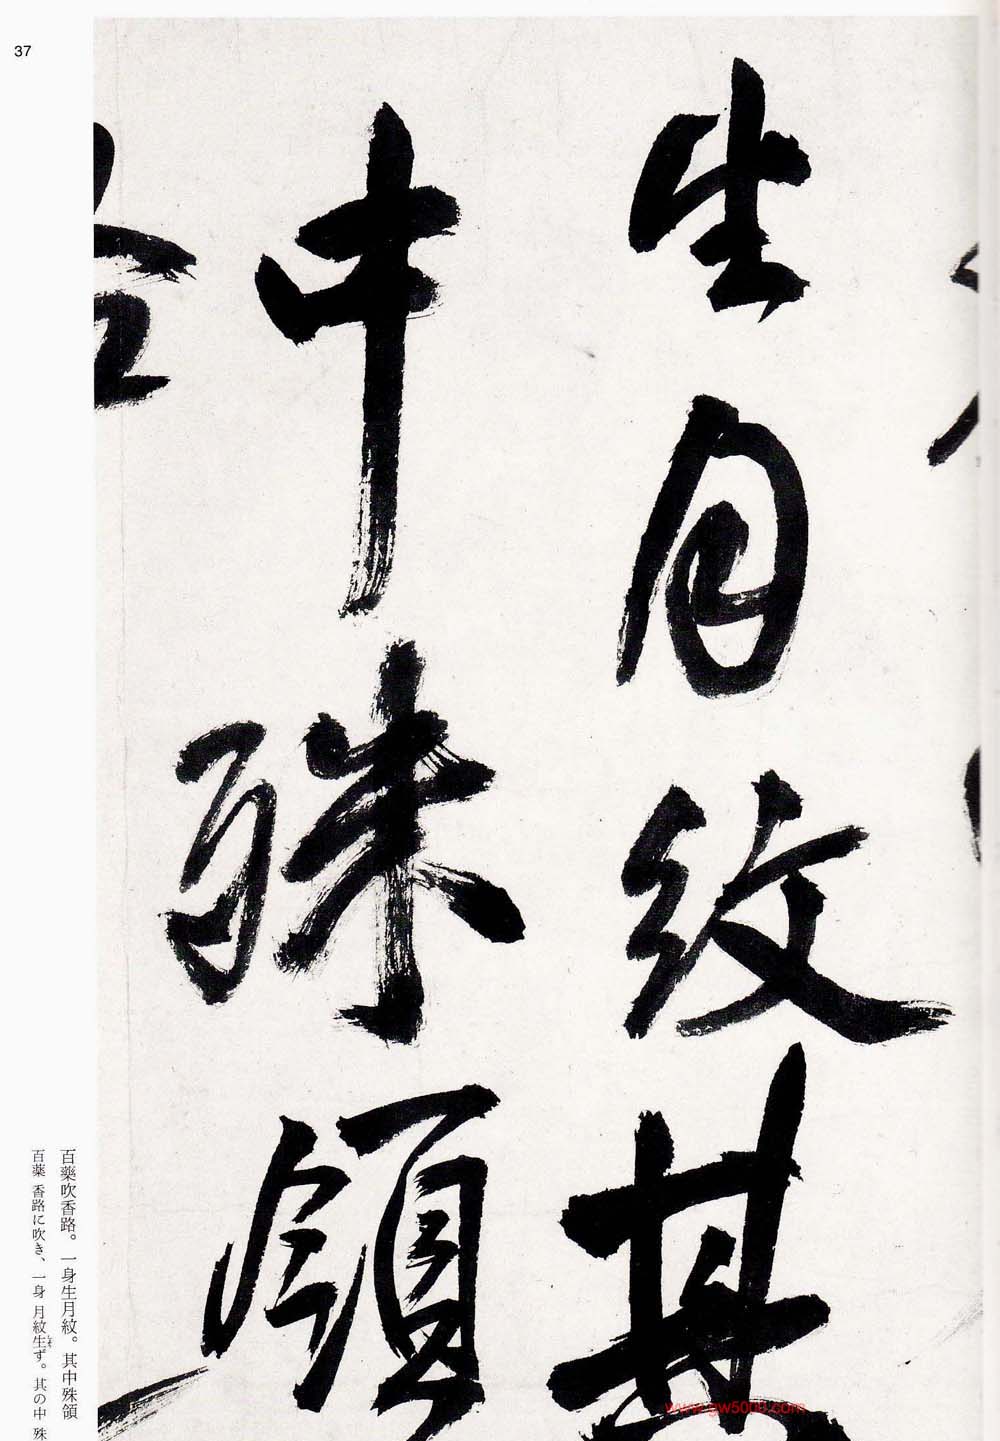 37
生月紋其
中殊領
百藥吹香路。一身生月紋。其中殊領
百薬 香路に吹き、一身 月紋生ず。其の中 殊
www.gw5000.com